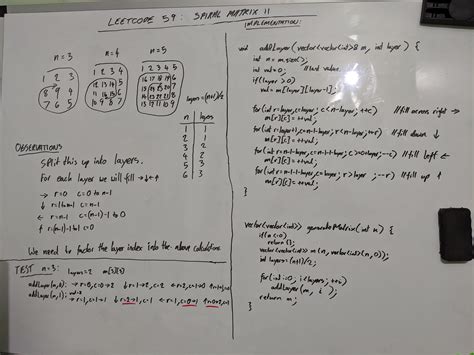 LEETCODE 59: SPIRAL MATRIX II
n=3 n=4 n=5
1 2 3
8 9 4
7 6 5
1 2 3 4
12 13 14 5
11 16 15 6
10 9 8 7
1 2 3 4 5
16 17 18 19 6
15 24 25 20 7
14 23 22 21 8
13 12 11 10 9
layers=(n+1)/2
n layers
1 1
2 1
3 2
4 2
5 3
6 3
OBSERVATIONS
Split this up into layers.
For each layer we will fill →↓←↑
→ r=0 c=0 to n-1
↓ r=1 to n-1 c=n-1
← r=n-1 c=(n-1)-1 to 0
↑ r=(n-1)-1 to 1 c=0
We need to factor the layer index into the above calculations.
TEST n=3: layers=2 m[3][3]
addLayer(m,0):
addLayer(m,1):
IMPLEMENTATION:
void addLayer(vector<vector<int>>& m, int layer) {
int n = m.size();
int val=0; // last value
if(layer>0)
val=m[layer][layer-1];
for(int r=layer, c=layer; c<n-layer; ++c) // fill across right →
m[r][c]=++val;
for(int r=layer+1, c=n-1-layer; r<n-layer; ++r) // fill down ↓
m[r][c]=++val;
for(int r=n-1-layer, c=n-1-layer-1; c>=layer; --c) // fill left ←
m[r][c]=++val;
for(int r=n-1-layer-1, c=layer; r>layer; --r) // fill up ↑
m[r][c]=++val;
}
vector<vector<int>> generateMatrix(int n) {
return {};
vector<vector<int>> m(n, vector<int>(n,0));
int layers=(n+1)/2;
for(int i=0; i<layers; ++i)
addLayer(m, i);
return m;
}